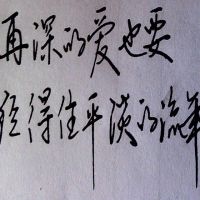 再深的爱也要
经得住平淡的流年